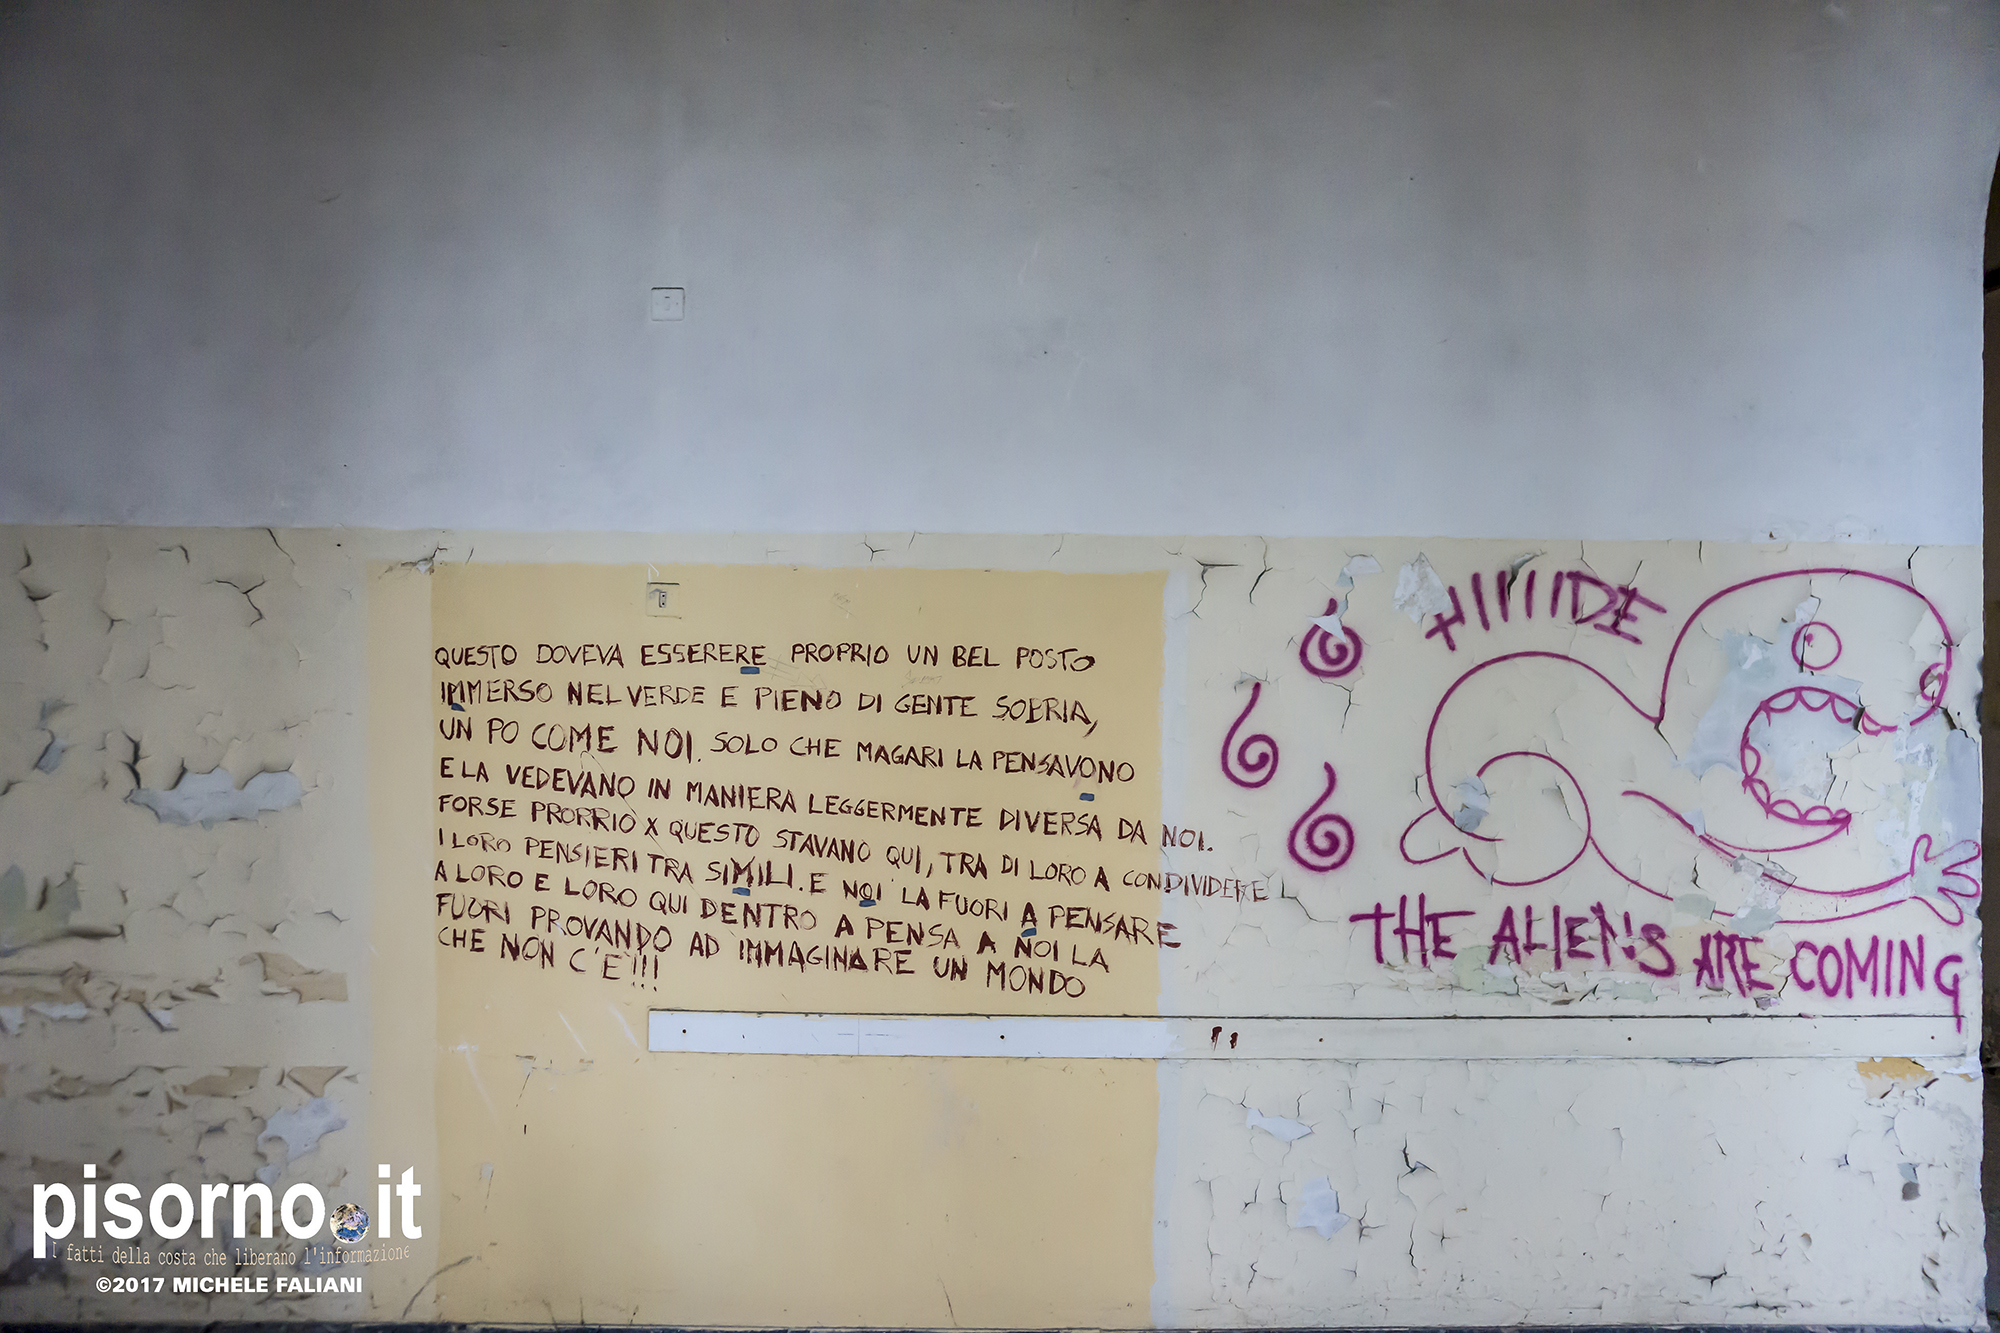 QUESTO DOVEVA ESSERERE PROPRIO UN BEL POSTO
IMMERSO NEL VERDE E PIENO DI GENTE SOBRIA,
UN PO COME NOI. SOLO CHE MAGARI LA PENSAVONO
E LA VEDEVANO IN MANIERA LEGGERMENTE DIVERSA DA NOI.
FORSE PROPRIO X QUESTO STAVANO QUI, TRA DI LORO A CONDIVIDERE
I LORO PENSIERI TRA SIMILI. E NOI LA FUORI A PENSARE
A LORO E LORO QUI DENTRO A PENSA A NOI LA
FUORI PROVANDO AD IMMAGINARE UN MONDO
CHE NON C'E'!!!
THE ALIENS ARE COMING
pisorno.it
I fatti della costa che liberano l'informazione
©2017 MICHELE FALIANI